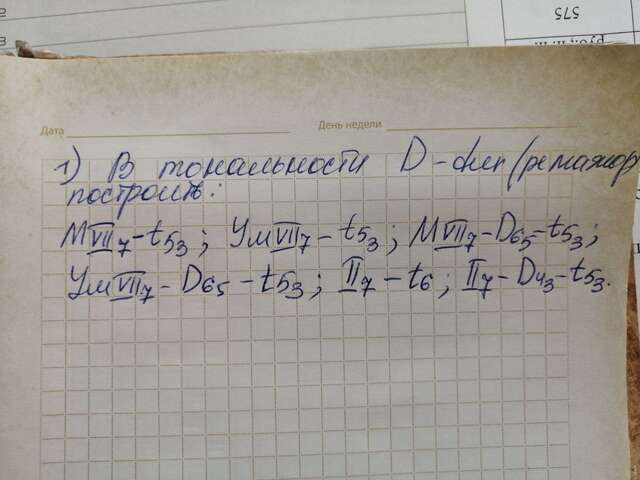 575
руб., ш.ш.
Дата
День недели
1) В тональности D-dur (ре мажор)
построить:
МVII7-t53; УмVII7-t53; МVII7-D65-t53;
УмVII7-D65-t53; II7-t6; II7-D43-t53.